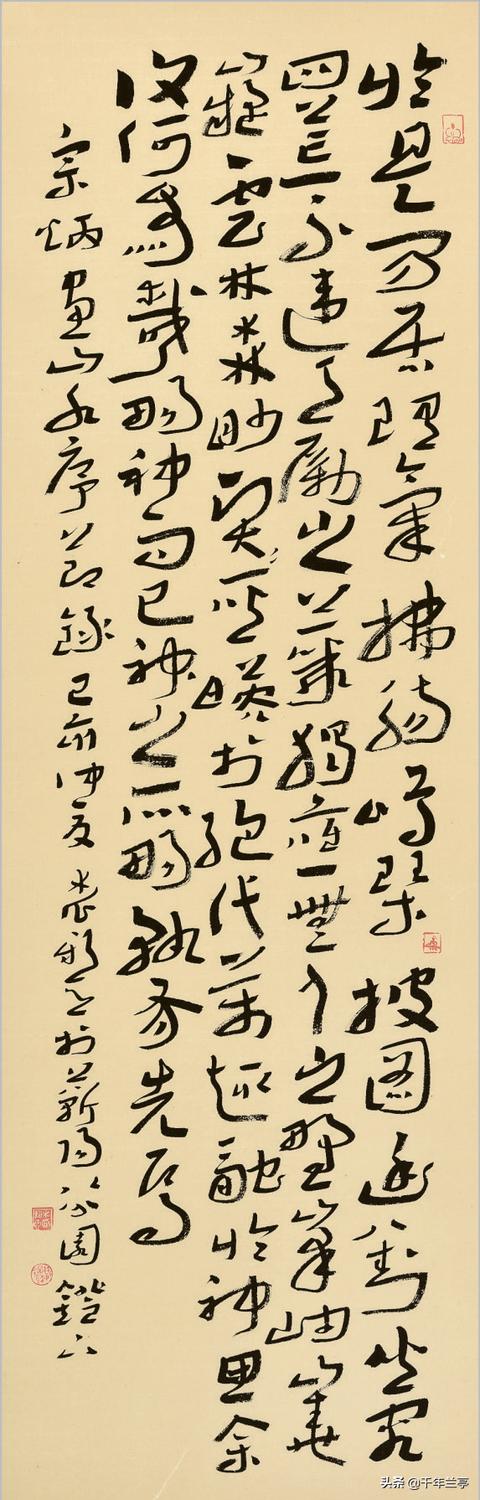 於是閒居理氣拂觴鳴琴披圖幽對坐究
四荒不違天勵之藂獨應無人之野峯岫嶤
嶷雲林森眇聖賢暎於絕代萬趣融於神思余
復何為哉暢神而已神之所暢孰有先焉
宗炳畫山水序節錄己亥仲夏於蘄陽公園鐙下
头条 @千年兰亭